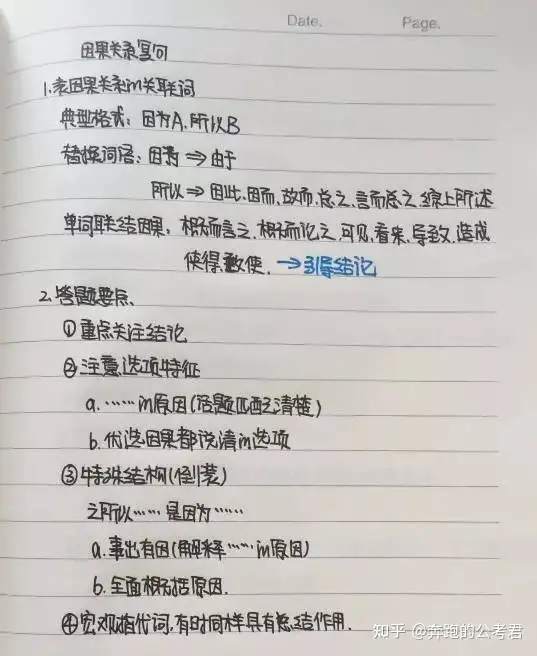 Date. Page.
因果关系复句
1.表因果关系的关联词
典型格式：因为A,所以B
替换词语：因为⇒由于
所以⇒因此、因而、故而、总之、言而总之、综上所述
单词联结因果：概而言之、概而论之、可见、看来、导致、造成
使得、致使. →引导结论
2.答题要点、
①重点关注结论
②注意选项特征
a.……的原因(话题匹配清楚)
b.优选因果都说清的选项
③特殊结构(倒装)
之所以……是因为……
a.事出有因(解释……的原因)
b.全面概括原因.
④宏观指代词,有时同样具有总结作用.
知乎 @奔跑的公考君